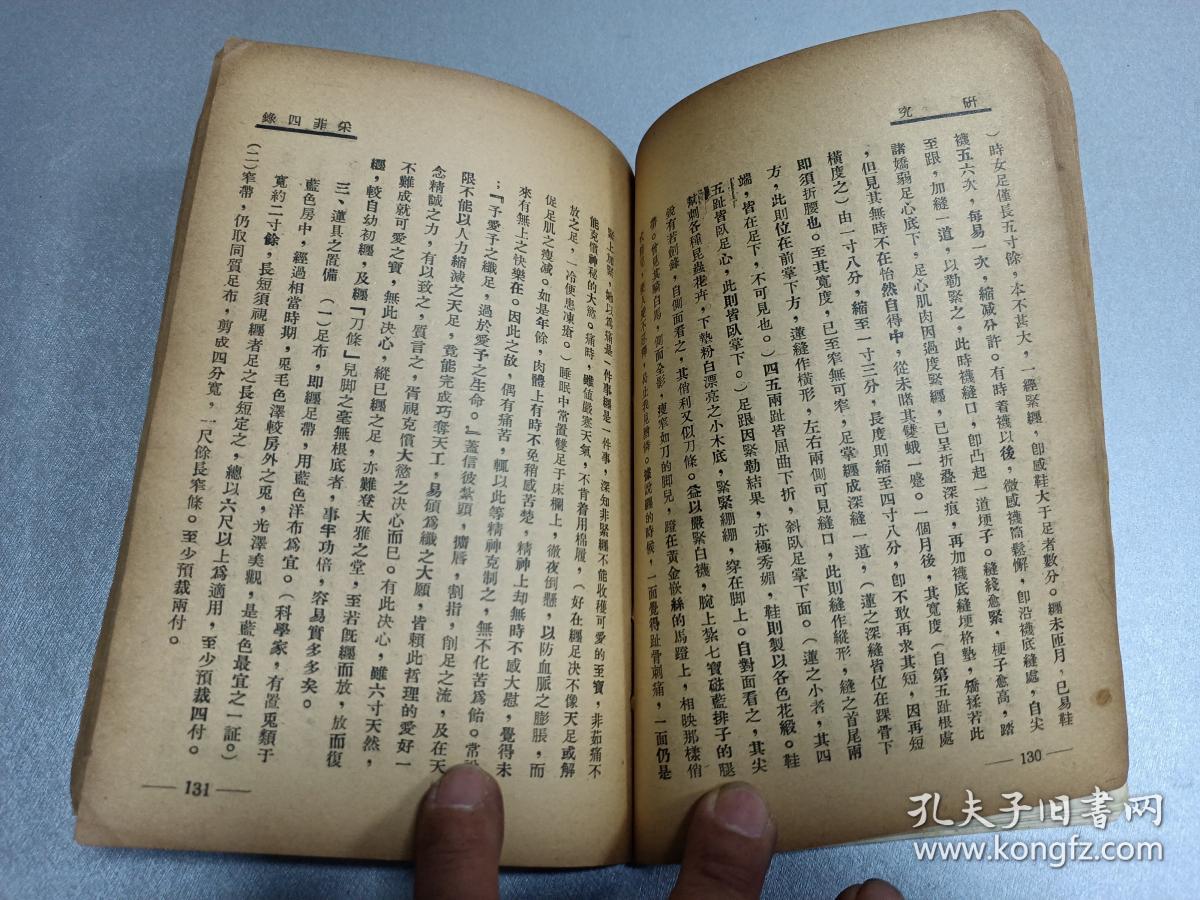 研究
)時女足僅長五寸餘,本不甚大,一經緊纏,卽感鞋大于足者數分。纏未匝月,已易鞋
襪五六次,每易一次,縮減分許。有時着襪以後,微感襪筒鬆懈,卽沿襪底縫處,自尖
至跟,加縫一道,以勒緊之,此時襪縫口,卽凸起一道埂子。縫綫愈緊,梗子愈高,踏
諸嬌弱足心底下,足心肌肉因過度緊纏,已呈折疊深痕,再加襪底縫埂格墊,矯揉若此
,但見其無時不在怡然自得中,從未睹其雙蛾一蹙。一個月後,其寬度(自第五趾根處
橫度之)由一寸八分,縮至一寸三分,長度則縮至四寸八分,卽不敢再求其短,因再短
卽須折腰也。至其寬度,已至窄無可窄,足掌纏成深縫一道,(蓮之深縫皆位在踝骨下
方,此則位在前掌下方,蓮縫作橫形,左右兩側可見縫口,此則縫作縱形,縫之首尾兩
端,皆在足下,不可見也。)四五兩趾皆屈曲下折,斜臥足掌下面。(蓮之小者,其四
五趾皆臥足心,此則皆臥掌下。)足跟因緊勒結果,亦極秀媚,鞋則製以各色花緞。鞋
幫刺各種昆蟲花卉,下墊粉白漂亮之小木底,緊緊綳綳,穿在脚上。自對面看之,其尖
銳有若劍鋒,自側面看之,其俏利又似刀條。益以嚴緊白襪,腕上紮七寶磁藍排子的腿
帶。曾見其騎白馬,側面全影,瘦窄如刀的脚兒,蹬在黃金嵌絲的馬蹬上,相映那樣俏
據說纏的時候,一面覺得趾骨刺痛,一面仍是
130
采菲四錄
緊上加緊,她以爲痛是一件事纏是一件事,深知非緊纏不能收穫可愛的至寶,非茹痛不
能克償神秘的大慾。痛時,雖値嚴寒天氣,不肯着用棉履,(好在纏足决不像天足或解
放之足,一冷便患凍瘡。)睡眠中常置雙足于床欄上,徹夜倒懸,以防血脈之膨脹,而
促足肌之瘦减。如是年餘,肉體上有時不免稍感苦楚,精神上却無時不感大慰,覺得未
來有無上之快樂在。因此之故,偶有痛苦,輒以此等精神克制之,無不化苦爲飴。常說
;『予愛予之纖足,過於愛予之生命。』蓋信彼紮頭,擫唇,割指,削足之流,及在天
限不能以人力縮減之天足,竟能完成巧奪天工,易碩爲纖之大願,皆賴此哲理的愛好一
念精誠之力,有以致之,質言之,胥視克償大慾之决心而巳。有此决心,雖六寸天然,
不難成就可愛之寶,無此决心,縱巳纏之足,亦難登大雅之堂,至若旣纏而放,放而復
纏,較自幼初纏,及纏「刀條」兒脚之毫無根底者,事半功倍,容易實多多矣。
三、蓮具之置備　(一)足布,卽纏足帶,用藍色洋布爲宜。(科學家,有置兎類于
藍色房中,經過相當時期,兎毛色澤較房外之兎,光澤美觀,是藍色最宜之一証。)
寬約二寸餘,長短須視纏者足之長短定之,總以六尺以上爲適用,至少預裁四付。
(二)窄帶,仍取同質足布,剪成四分寬,一尺餘長窄條。至少預裁兩付。
131
孔夫子旧书网
www.kongfz.com